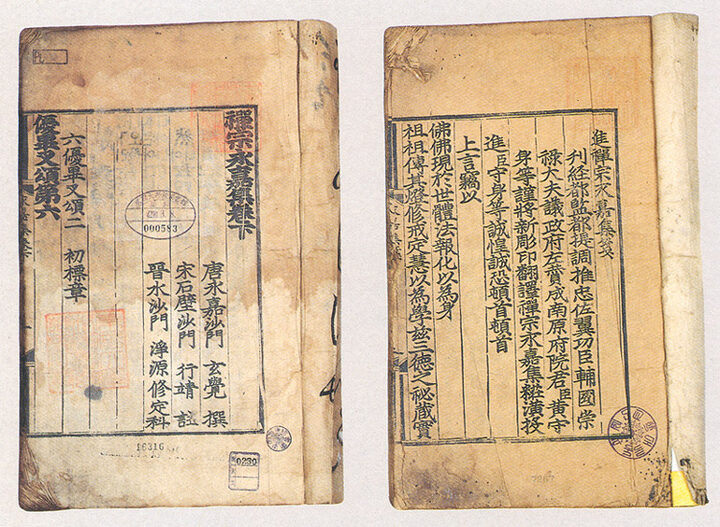 禪宗永嘉集卷下
唐永嘉沙門 玄覺 撰
宋石壁沙門 行靖 註
晉水沙門 淨源修定科
六優畢叉頌二 初標章
優畢叉頌第六
000583
16316
0230
進禪宗永嘉集箋
刊經都監都提調推忠佐翼功臣輔國崇
祿大夫議政府左賛成南原府院君臣黃守
身等謹將新彫印翻譯禪宗永嘉集粧潢投
進臣守身等誠惶誠恐頓首頓首
上言竊以
佛佛現於世體法報化以為身
祖祖傳其燈修戒定慧以為學玆三德之秘藏實